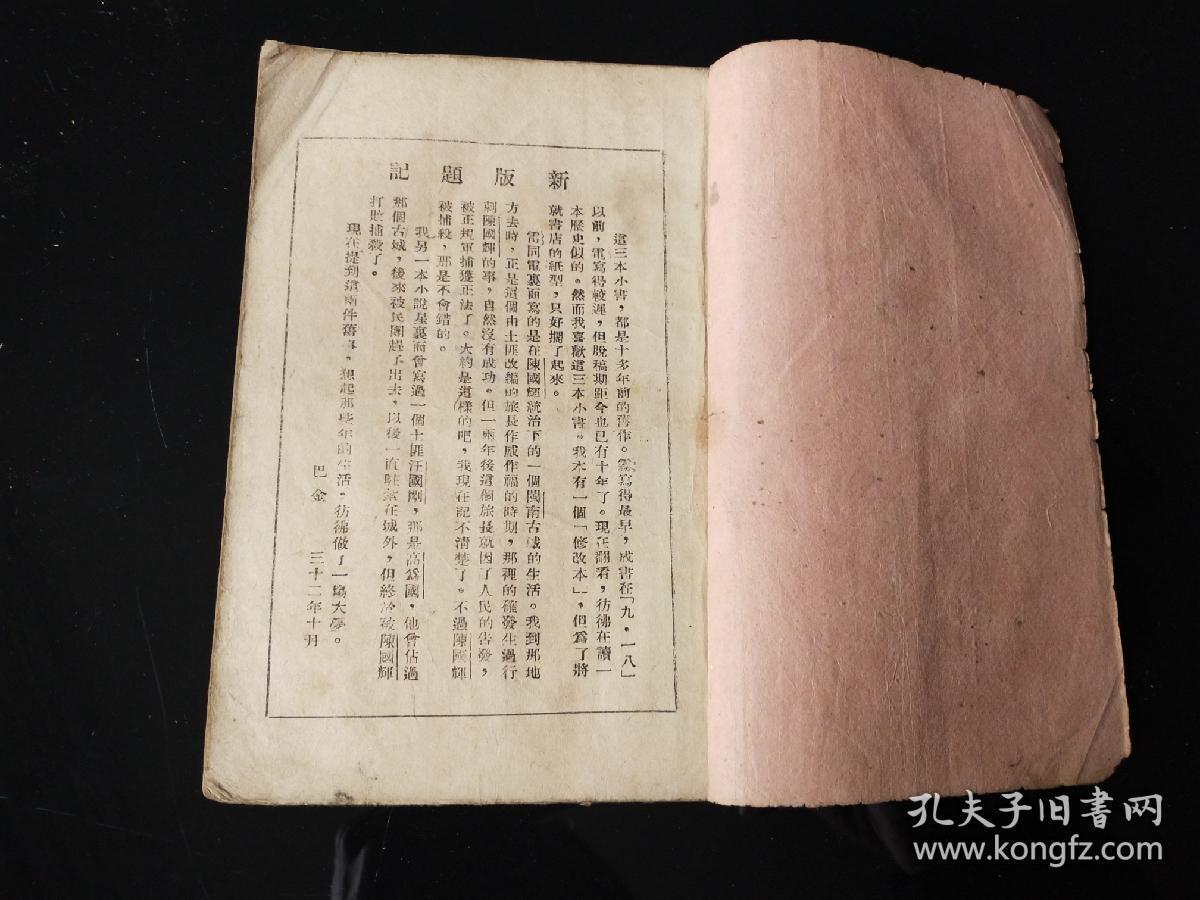 新版題記
這三本小書，都是十多年前的舊作。霧寫得最早，成書在「九・一八」
以前，電寫得較遲，但脫稿期距今也已有十年了。現在翻看，彷彿在讀一
本歷史似的。然而我喜歡這三本小書。我本有一個「修改本」，但為了將
就書店的紙型，只好擱了起來。
雷同電裏面寫的是在陳國輝統治下的一個閩南古城的生活。我到那地
方去時，正是這個由土匪改編的旅長作威作福的時期，那裡的確發生過行
刺陳國輝的事，自然沒有成功。但一兩年後這個旅長就因了人民的告發，
被正規軍捕獲正法了。大約是這樣的吧，我現在記不清楚了。不過陳國輝
被捕殺，那是不會錯的。
我另一本小說星裏面曾寫過一個土匪汪國剛，那是高為國，他曾佔過
那個古城，後來被民團趕了出去，以後一直駐紮在城外，但終於被陳國輝
打敗捕殺了。
現在提到這兩件舊事，想起那些年的生活，彷彿做了一場大夢。
巴金　三十二年十月
孔夫子旧书网
www.kongfz.com